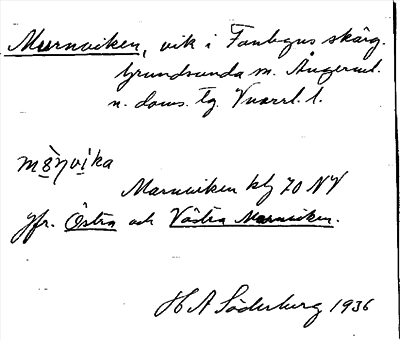 Murnviken, vik i Fanbyns skärg.
Grundsunda sn. Ångerml.
n. doms. tg. Vnorrl. l.
Marnviken kbl 70 NV
Jfr. Östra och Västra Marnviken.
H A Söderberg 1936